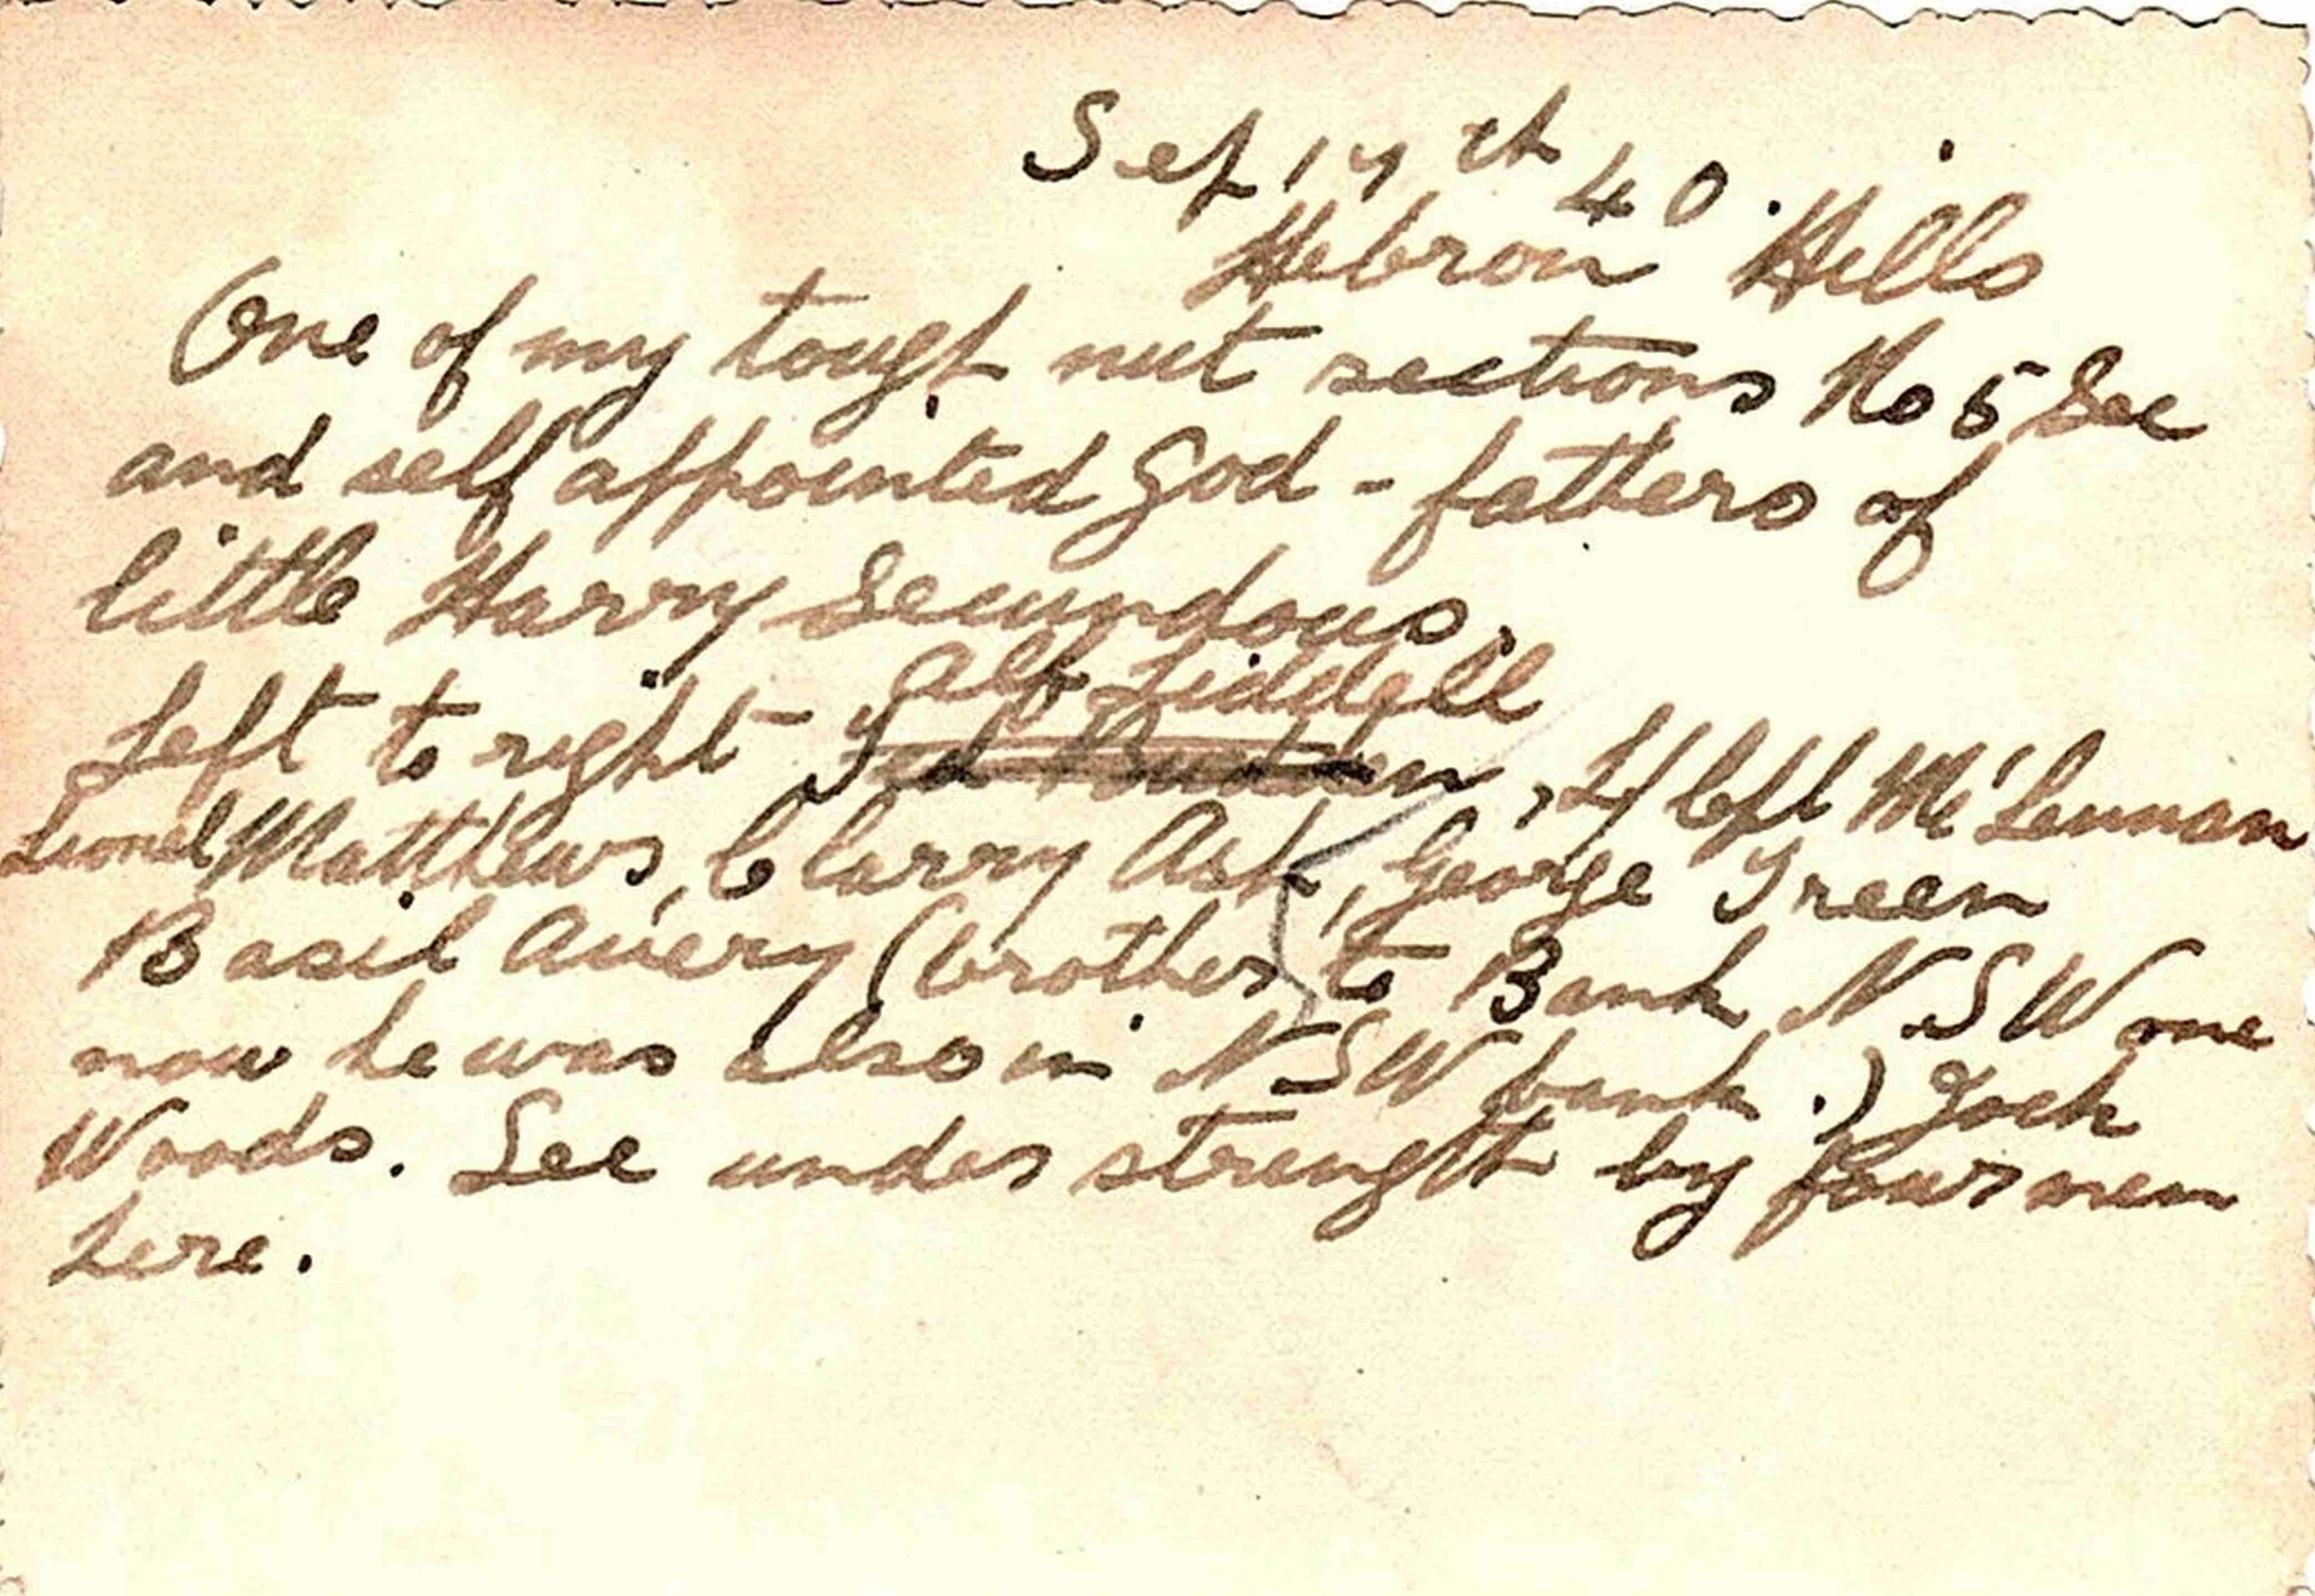 Sep 17th 40.
Hebron Hills
One of my tough nut sections No 5 Sec
and self appointed God-fathers of
little Harry Secundous.
Alf Liddell
Left to right - , L/ Cpl McLennan
Lionel Matthews, Clarry Ash, George Green
Basil Avery (brother to Bank NSW one
now he was also in NSW bank.) Jock
Woods. Sec under strength by four men
here.